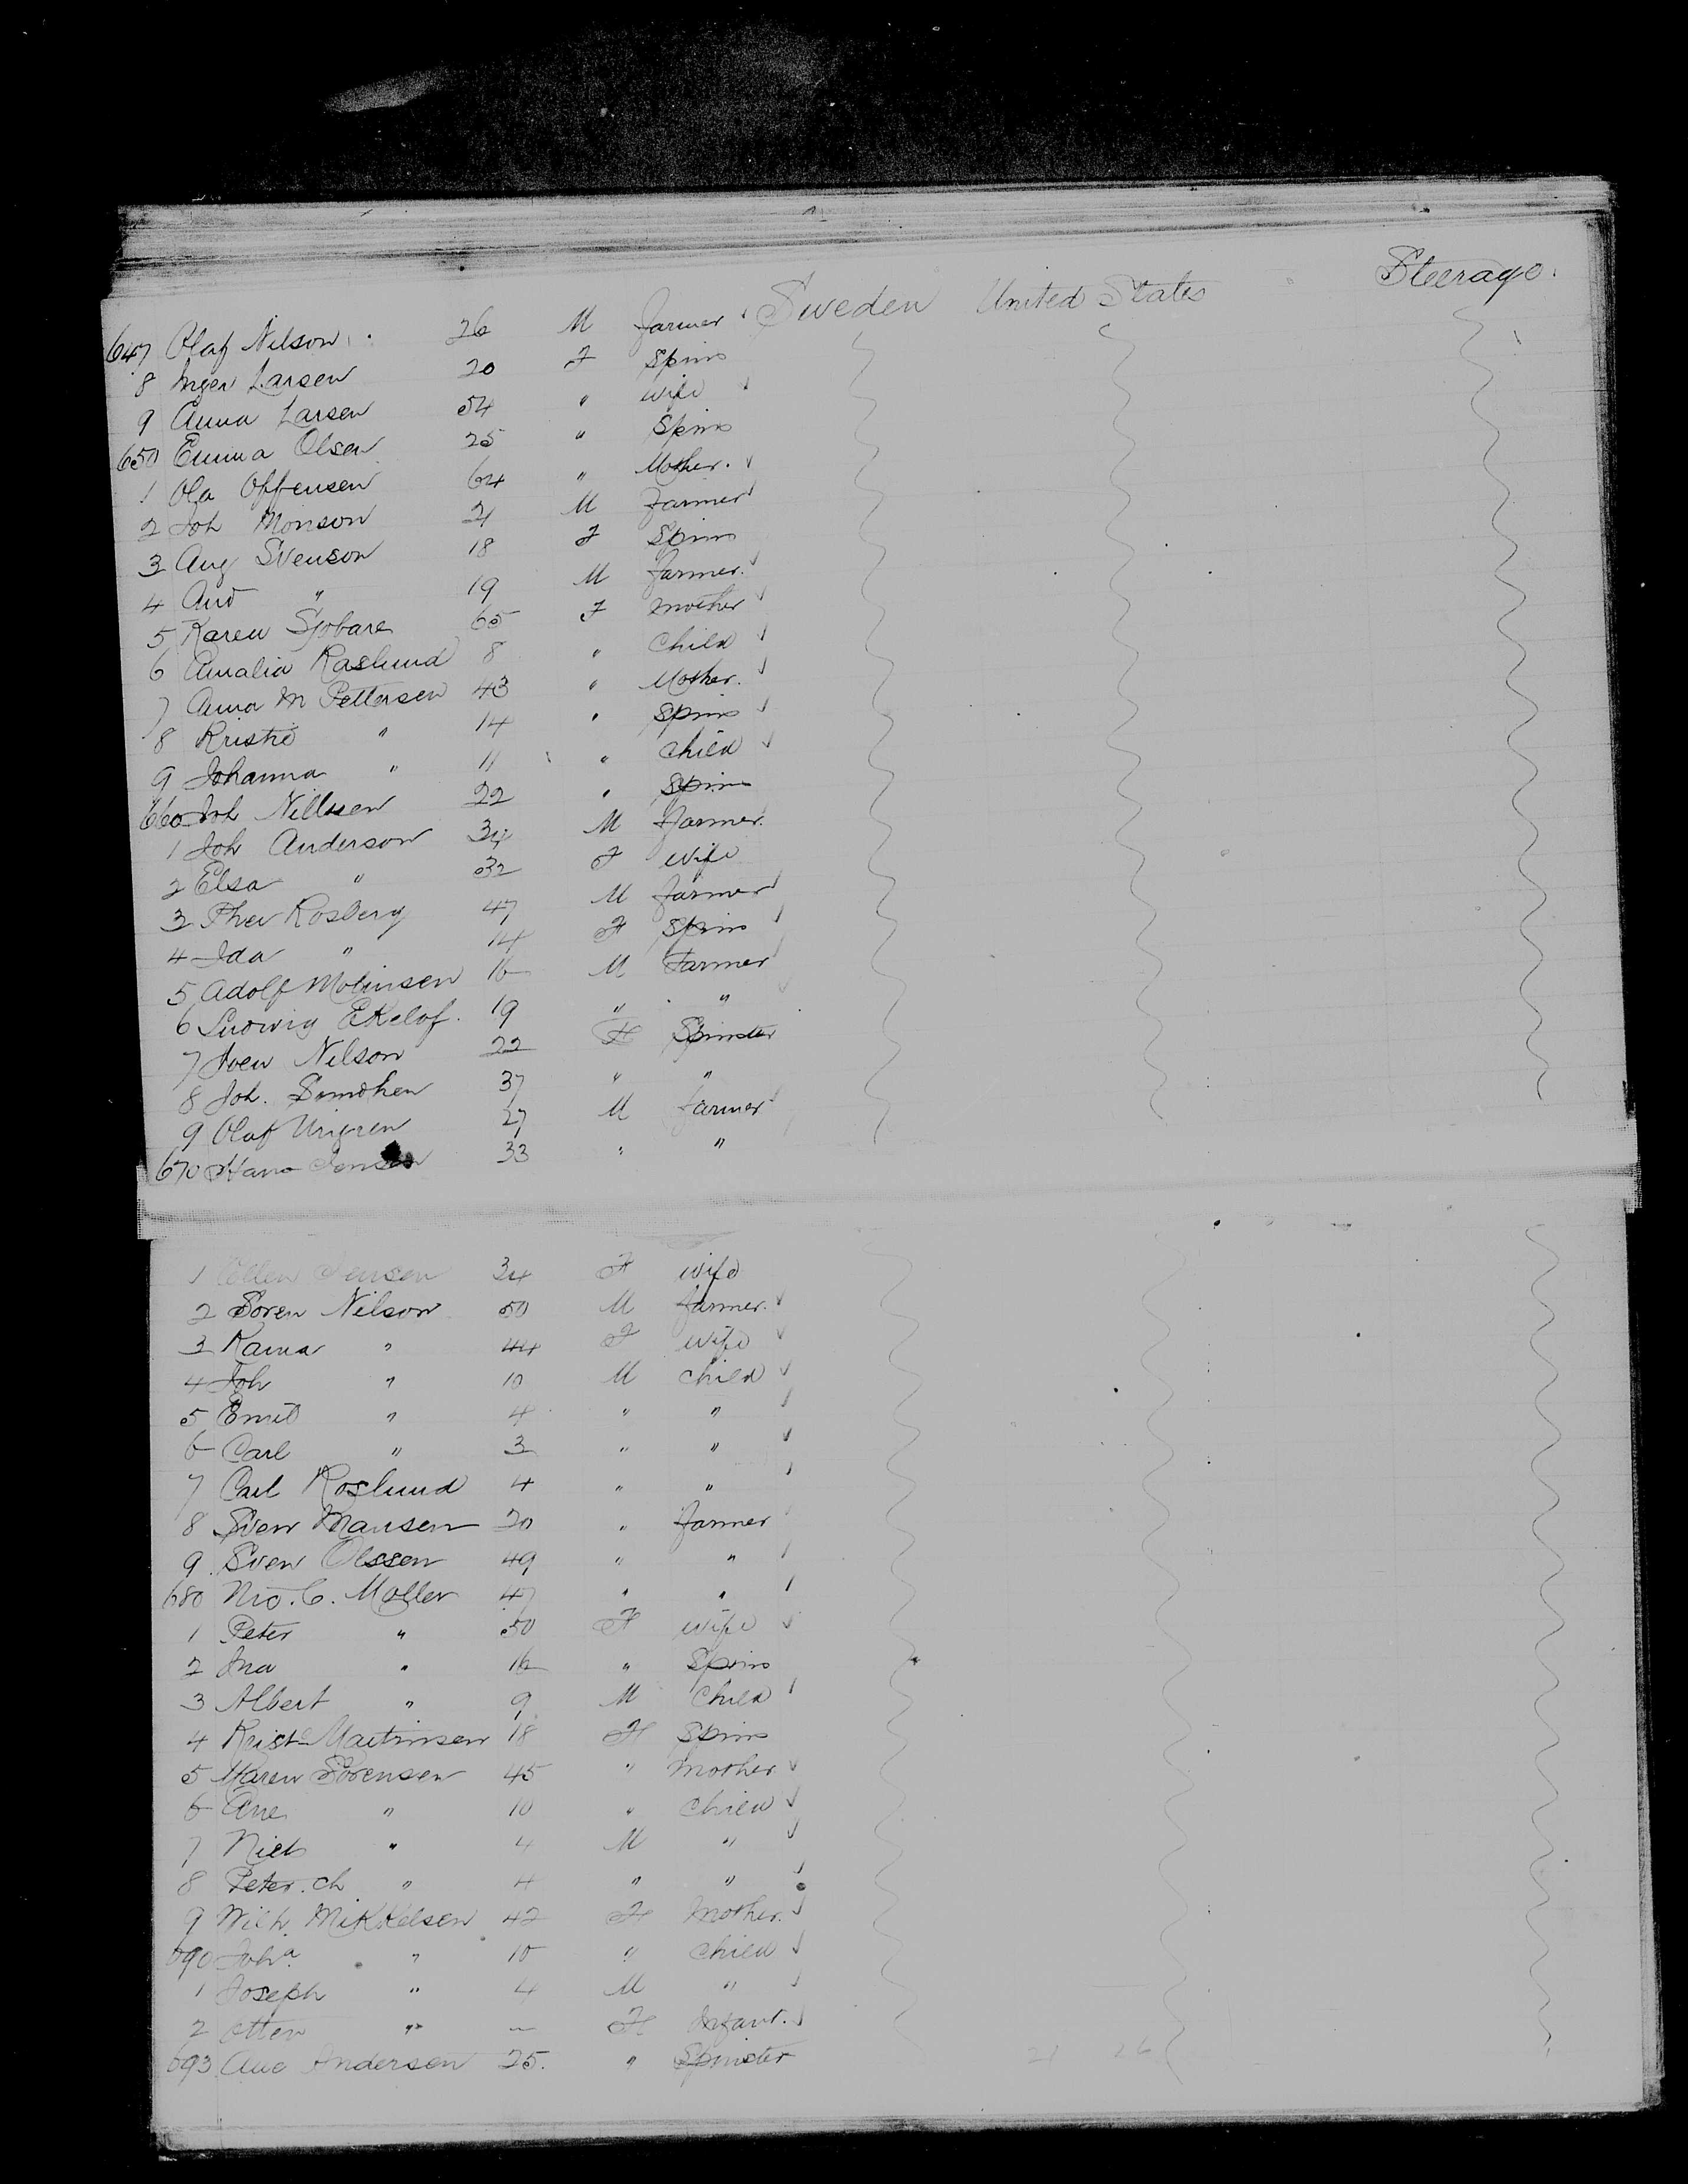 Steerage.
647 Olaf Nilson 26 M Farmer Sweden United States
8 Inger Larsen 20 F Spins
9 Anna Larsen 54 " Wife
650 Emma Olsen 25 " Spins
1 Ola Offensen 64 " Mother.
2 Joh Monson 21 M Farmer
3 Aug Svenson 18 F Spins
4 And " 19 M Farmer.
5 Karen Sjobare 65 F Mother
6 Amalia Raslund 8 " Child
7 Anna M Pettersen 43 " Mother.
8 Kristie " 14 " Spins
9 Johanna " 11 " Child
660 Joh Nillsen 22 " Spins
1 Joh Anderson 34 M Farmer.
2 Elsa " 32 F Wife
3 Rosberg 47 M Farmer
4 Ida " 14 F Spins
5 Adolf Molinsen 16 M Farmer
6 Ludwig Ekelof. 19 " "
7 Nilson 22 F Spinster
8 Joh. 37 " "
9 Olaf 27 M Farmer
670 Hans Jensen 33 " "
1 Jensen 34 F Wife
2 Soren Nilson 50 M Farmer.
3 Kama " 44 F Wife
4 Joh " 10 M Child
5 Emil " 4 " "
6 Carl " 3 " "
7 Carl Roslund 4 " "
8 Sven Mansen 20 " Farmer
9 Sven Olssen 49 " "
680 Nic. C. Moller 47 " "
1 Peter " 50 F Wife
2 Ina " 16 " Spins
3 Albert " 9 M Child
4 Krist Martinsen 18 F Spins
5 Maren Sorensen 45 " Mother
6 Ane " 10 " Child
7 Niels " 4 M "
8 Peter. ch " 4 " "
9 Wilh. Mikkelsen 42 F Mother.
690 Joha " 10 " Child
1 Joseph " 4 M "
2 " — F Infant.
693 Ane Andersen 25. " Spinster 21 26